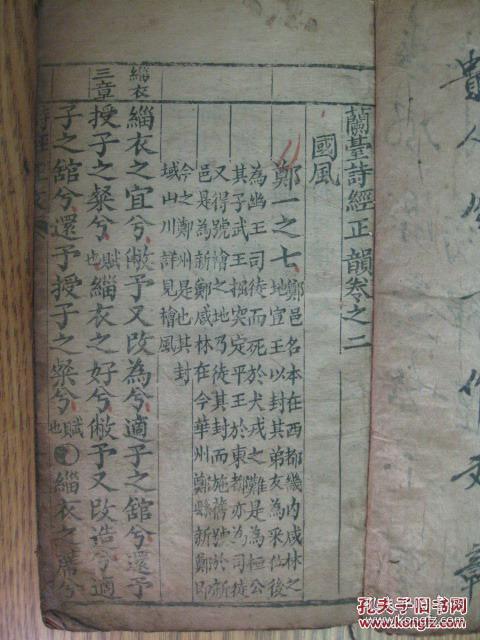 蘭臺詩經正韻卷之二
國風
鄭一之七
鄭邑名本在西都畿内咸林之
地宣王以封其弟友為采地後
為幽王司徒而死於犬戎之難是為桓公
其子武王掘突定平王於東都亦為司徒
又得虢檜之地乃徒其封而施舊號於新
邑是為新鄭咸林在今華州鄭縣新鄭即
今之鄭州是也其封
域山川詳見檜風
緇衣
三章
緇衣之宜兮敝予又改為兮適子之舘兮還予
授子之粲兮賦也緇衣之好兮敝予又改造兮適
子之舘兮還予授子之粲兮賦也緇衣之蓆兮
貴
人
作
文
章
孔夫子旧书网